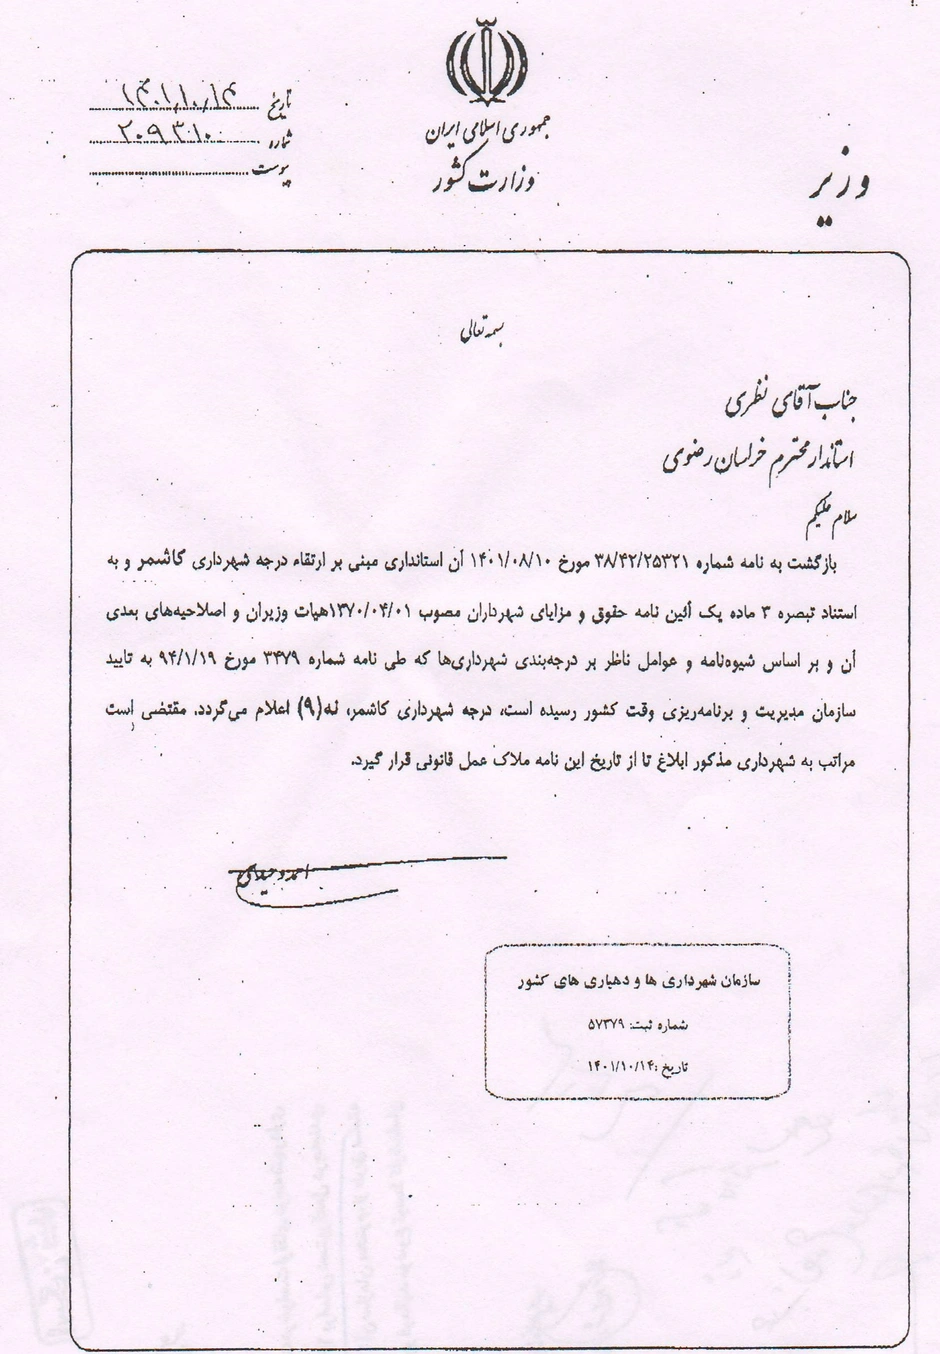 جمهوری اسلامی ایران
وزارت کشور
وزیر
تاریخ ۱۴۰۱/۱۰/۱۴
شماره ۲۰۹۳۱۰
پیوست
بسمه تعالی
جناب آقای نظری
استاندار محترم خراسان رضوی
سلام علیکم
بازگشت به نامه شماره ۳۸/۴۲/۲۵۳۲۱ مورخ ۱۴۰۱/۰۸/۱۰ آن استانداری مبنی بر ارتقاء درجه شهرداری کاشمر و به
استناد تبصره ۳ ماده یک آئین نامه حقوق و مزایای شهرداران مصوب ۱۳۷۰/۰۴/۰۱هیات وزیران و اصلاحیه‌های بعدی
آن و بر اساس شیوه‌نامه و عوامل ناظر بر درجه‌بندی شهرداری‌ها که طی نامه شماره ۳۴۷۹ مورخ ۹۴/۱/۱۹ به تایید
سازمان مدیریت و برنامه‌ریزی وقت کشور رسیده است، درجه شهرداری کاشمر، نه(۹) اعلام می‌گردد. مقتضی است
مراتب به شهرداری مذکور ابلاغ تا از تاریخ این نامه ملاک عمل قانونی قرار گیرد.
احمد وحیدی
سازمان شهرداری ها و دهیاری های کشور
شماره ثبت: ۵۷۳۷۹
تاریخ :۱۴۰۱/۱۰/۱۴